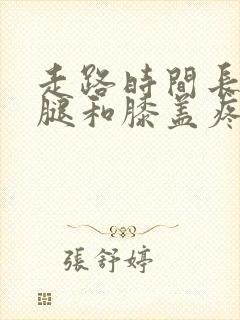 走路時間長
腿和膝盖疼
張舒婷